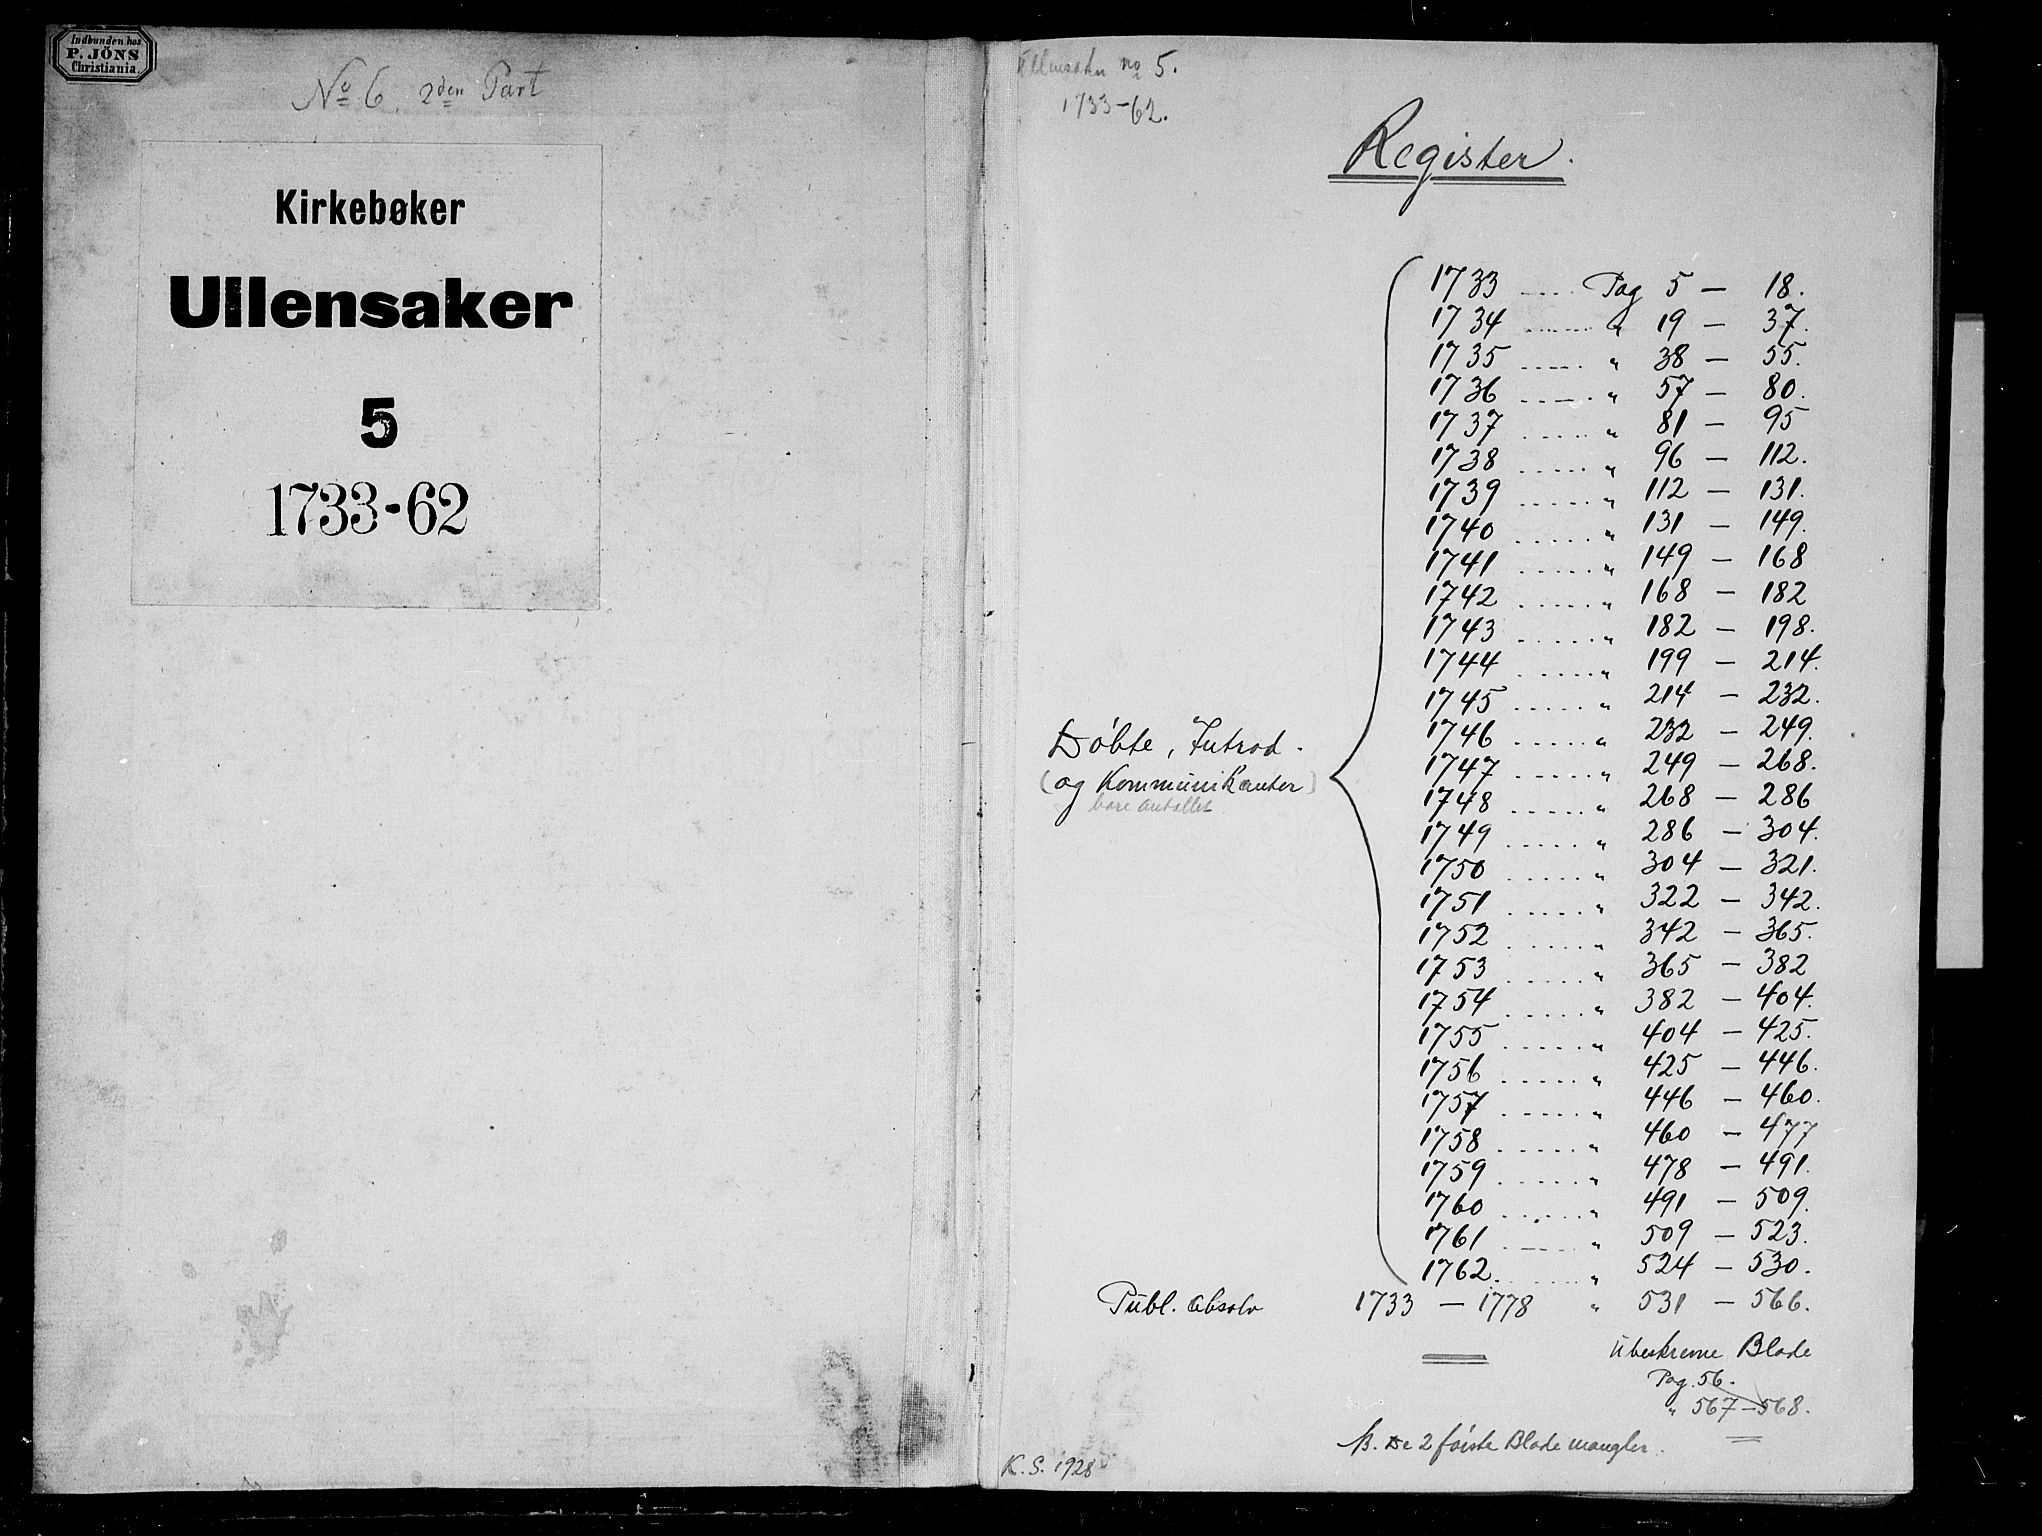 Indbunden hos
P. JÖNS
Christiania.
No 6. 2den Part
Kirkebøker
Ullensaker
5
1733-62
Ullensaker no 5.
1733-62.
Register.
1733 ..... Pag 5 — 18.
1734 ....... " 19 — 37.
1735 ...... " 38 — 55.
1736 ...... " 57 — 80.
1737 ...... " 81 — 95
1738 ...... " 96 — 112.
1739 ...... " 112 — 131.
1740 ...... " 131 — 149.
1741 ...... " 149 — 168
1742 ...... " 168 — 182
1743 ...... " 182 — 198.
1744 ...... " 199 — 214.
1745 ...... " 214 — 232.
1746 ...... " 232 — 249.
1747 ...... " 249 — 268.
1748 ...... " 268 — 286
1749 ...... " 286 — 304.
1750 ...... " 304 — 321.
1751 ...... " 322 — 342.
1752 ...... " 342 — 365.
1753 ...... " 365 — 382
1754 ...... " 382 — 404.
1755 ...... " 404 — 425.
1756 ...... " 425 — 446.
1757 ...... " 446 — 460.
1758 ...... " 460 — 477
1759 ...... " 478 — 491.
1760 ...... " 491 — 509.
1761 ...... " 509 — 523.
1762. ...... " 524 — 530.
Döbte, Introd.
(og Kommunikanter)
bare antallet
Publ. absolv 1733 — 1778 " 531 — 566.
Ubeskrevne Blade
Pag. 56.
" 567-568.
NB. De 2 første Blade mangler.
K. S. 1928